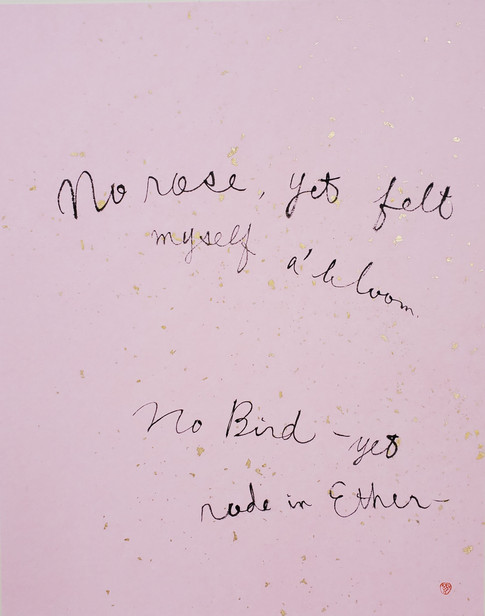 No rose, yet felt
myself a'bloom.
No Bird - yet
rode in Ether -